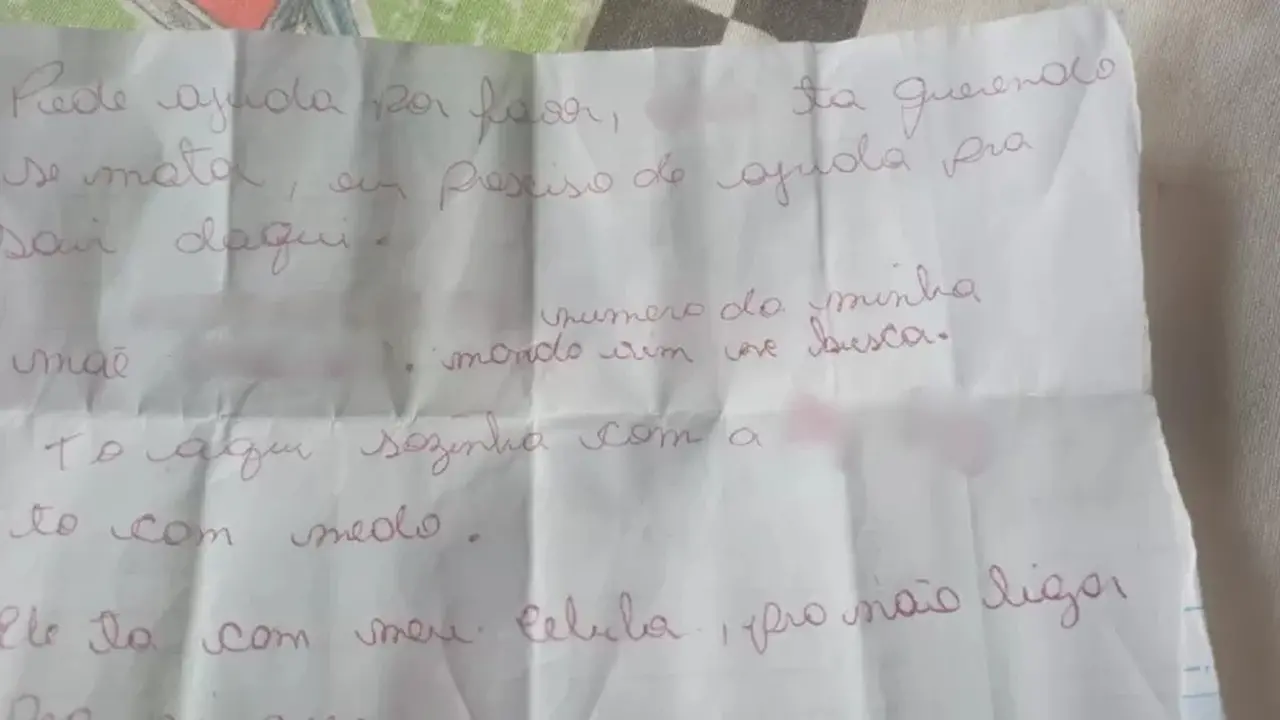 Piede ajuda por favor, ta querendo
se mata, eu presciso de ajuda pra
sair daqui.
numero da minha
mãe . manda vim me busca.
To aqui sozinha com a
to com medo.
Ele ta com meu celula, pra não ligar